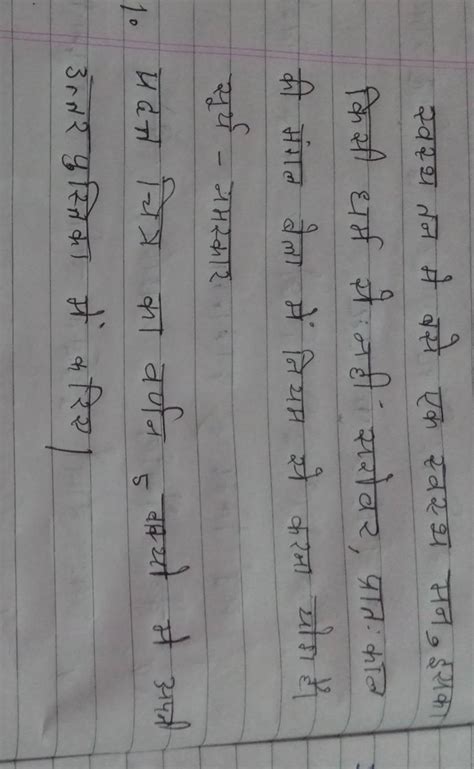 स्वस्थ तन में बसे एक स्वस्थ मन, इसका
किसी धर्म से नहीं सरोवर, प्रातः काल
की मंगल बेला में नियम से करना योग है।
सूर्य - नमस्कार
1. प्रदत्त चित्र का वर्णन 5 वाक्यों में अपनी
उत्तर पुस्तिका में करिए।